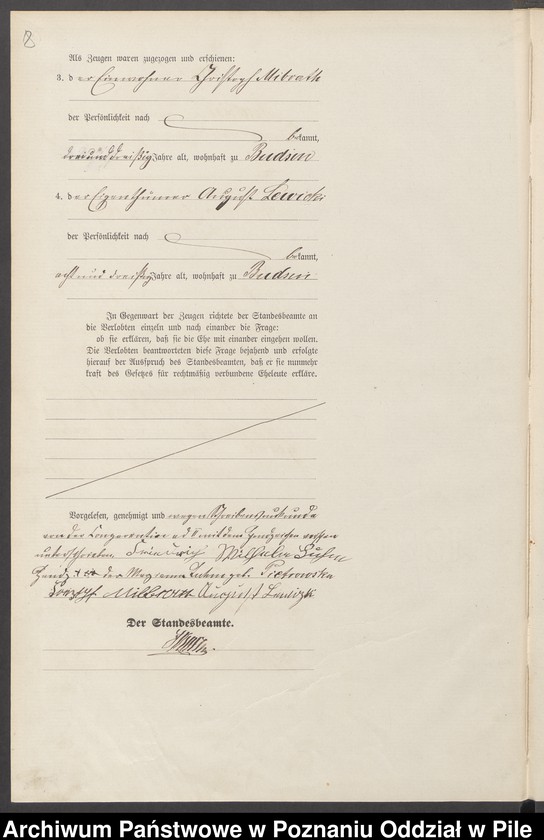 8
Als Zeugen waren zugezogen und erschienen:
3. der Einwohner Christoph Milrath
der Persönlichkeit nach
bekannt,
dreiunddreißig Jahre alt, wohnhaft zu Budsin
4. der Eigenthümer August Lewicki
der Persönlichkeit nach
bekannt,
acht und dreißig Jahre alt, wohnhaft zu Budsin
In Gegenwart der Zeugen richtete der Standesbeamte an
die Verlobten einzeln und nach einander die Frage:
ob sie erklären, daß sie die Ehe mit einander eingehen wollen.
Die Verlobten beantworteten diese Frage bejahend und erfolgte
hierauf der Ausspruch des Standesbeamten, daß er sie nunmehr
kraft des Gesetzes für rechtmäßig verbundene Eheleute erkläre.
Vorgelesen, genehmigt und wegen Schreibensunkunde
von der mit dem Handzeichen
unterschrieben Friedrich Wilhelm
Handz +++ der geb. Pietrowska
August
Der Standesbeamte.
Archiwum Państwowe w Poznaniu Oddział w Pile